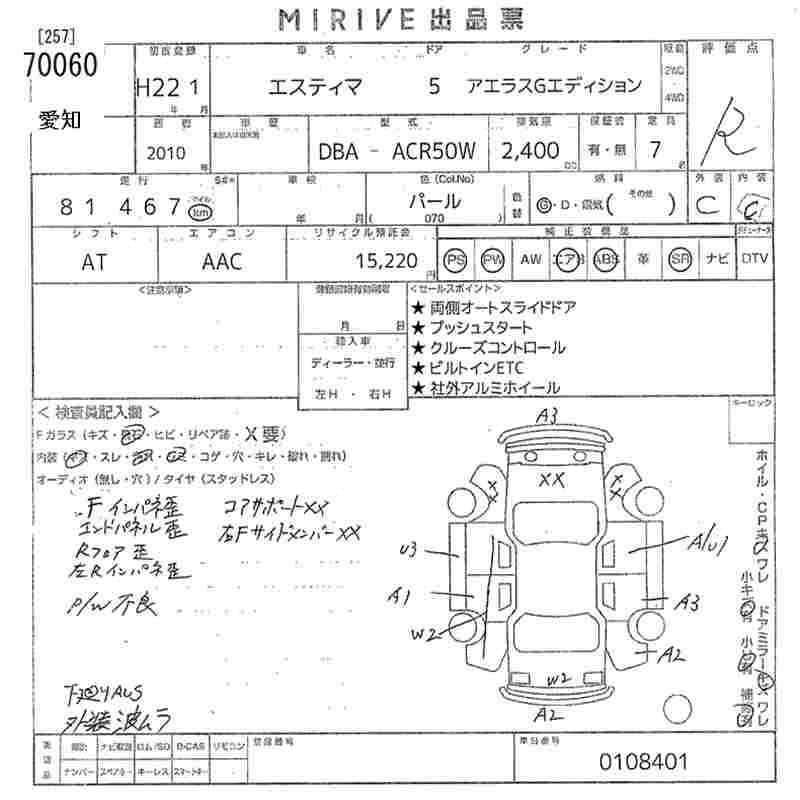 MIRIVE出品票
[257]
70060
愛知
初度登録 車名 ドア グレード 駆動 評価点
H22 1 エスティマ 5 アエラスGエディション 2WD 4WD
年 月
R
車歴 型式 排気量 保証書 定員
2010 年 DBA - ACR50W 2,400 cc 有・無 7 名
走行 車検 色(Col.No) 色替 燃料 外装 内装
81 467 km 年 月 パール ( 070 ) G・D・電気( その他 ) C C
シフト エアコン リサイクル預託金 純正装備品
AT AAC 15,220 円 PS PW AW エアB ABS 革 SR ナビ DTV
<注意事項>
月 日
輸入車
ディーラー・並行
左H ・ 右H
<セールスポイント>
★ 両側オートスライドドア
★ プッシュスタート
★ クルーズコントロール
★ ビルトインETC
★ 社外アルミホイール
キーロック
< 検査員記入欄 >
Fガラス(キズ・ ・ヒビ・リペア跡・X要)
内装(キズ・スレ・ ・ ・コゲ・穴・キレ・破れ・割れ)
オーディオ(無し・穴)/タイヤ(スタッドレス)
Fインパネ歪 コアサポートXX
エンドパネル歪 右FサイドメンバーXX
Rフロア歪
左Rインパネ歪
P/W不良
外装波ムラ
A3
XX
XX
XX
U3
A/U1
A1
A3
W2
A2
W2
A2
ホイル・CPキズワレ
ドアミラーキズワレ
小キズ有 小凹有 補修有
ナビ取説 ロム/SD B-CAS リモコン
ナンバー スペアキー キーレス スマートキー
登録番号
車台番号
0108401